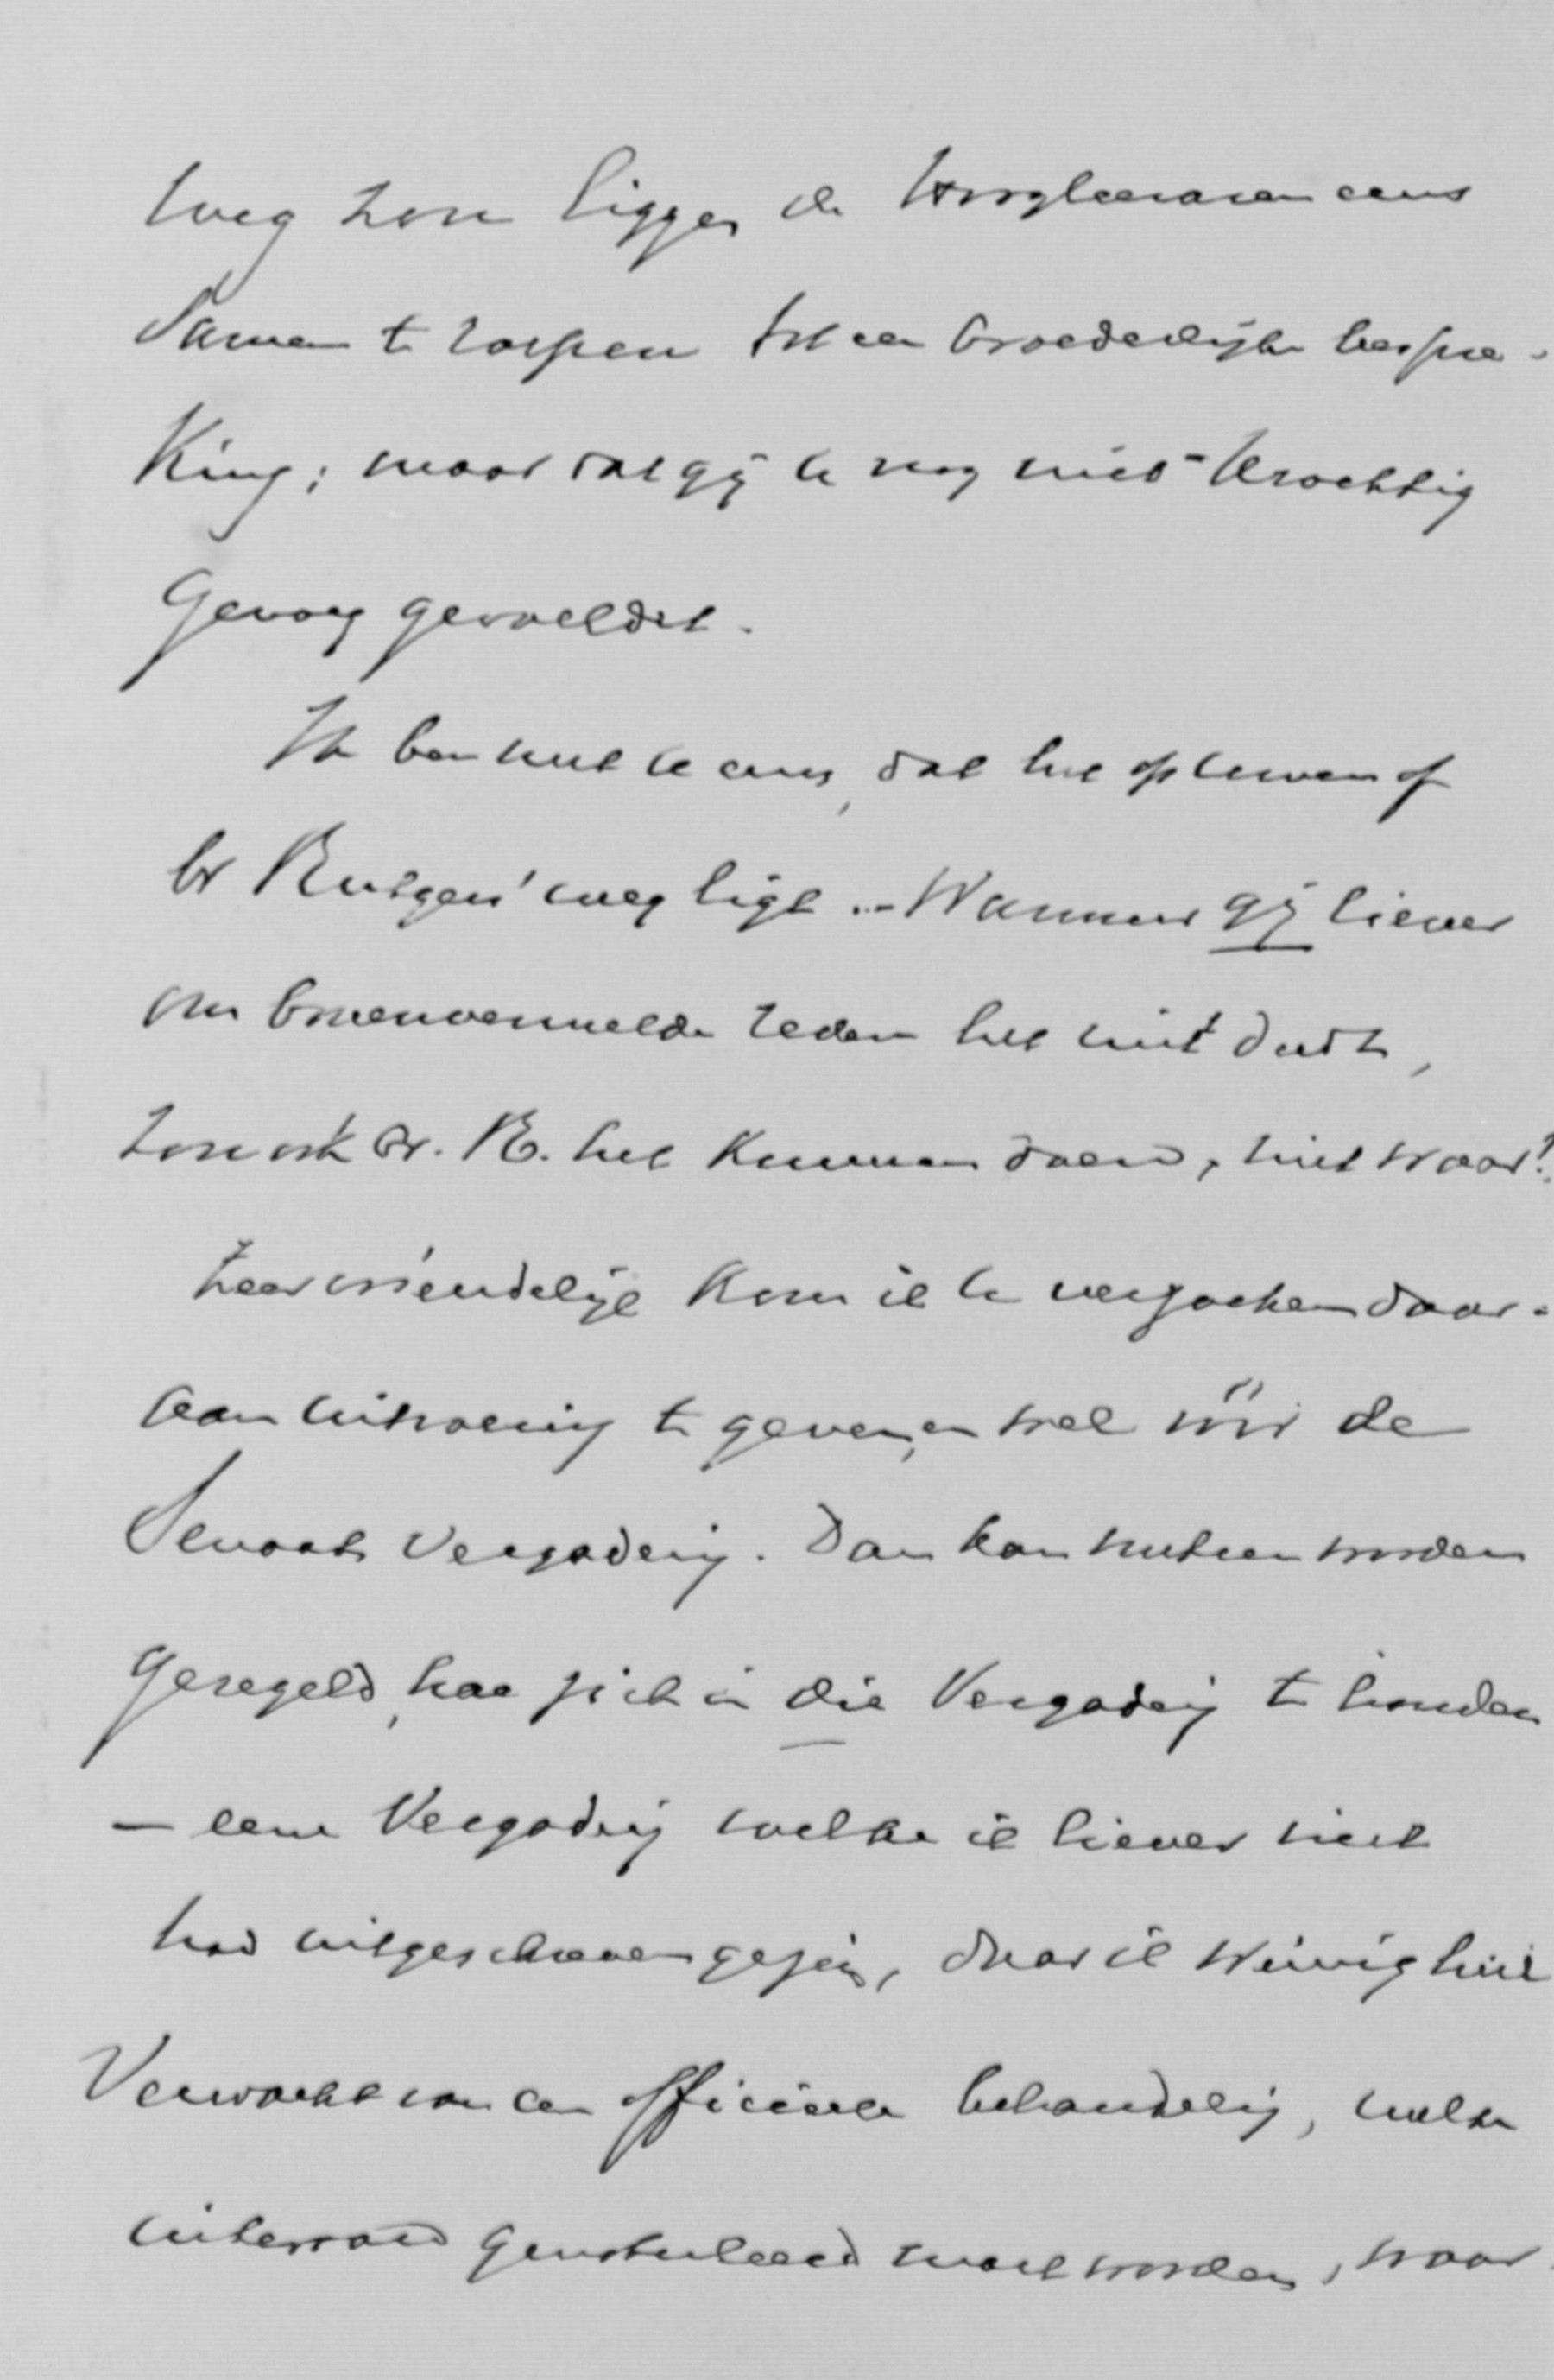 weg zou liggen de Hoogleeraren eens
samen te roepen tot een broederlijke bespre-
king; maar dat gij U nog niet krachtig
genoeg gevoeldet.
Ik ben het U eens, dat het op Uwen of
br Rutgers' weg ligt. - Wanneer gij liever
om bovenvermelde reden het niet deedt,
zou ook Dr. R. het kunnen doen, niet waar?
Zeer vriendelijk kom ik U verzoeken daar-
aan uitvoering te geven, en wel vóór de
Senaats Vergadering. Dan kan meteen worden
geregeld, hoe zich in die Vergadering te houden
- eene Vergadering welke ik liever niet
had uitgeschreven gezien, daar ik weinig heil
verwacht van een officieele behandeling, welke
uiteraard genotuleerd moet worden, waar